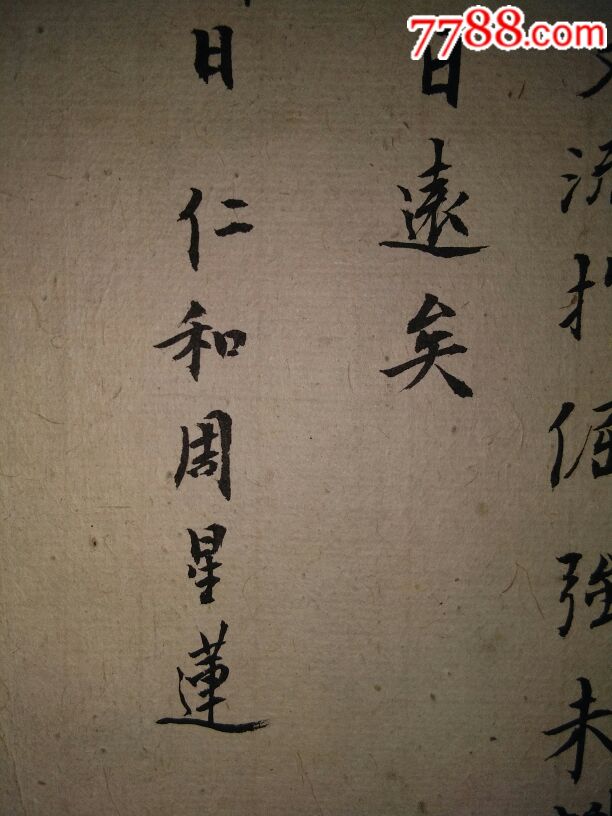 7788.com
流扎倔強未
日遠矣
日 仁和周星蓮